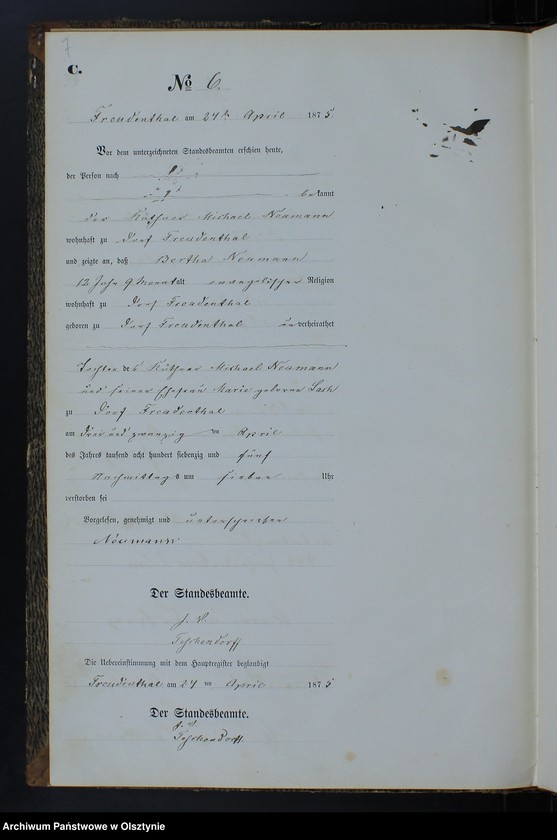 7
C.
No 6.
Freudenthal am 24ten April 1875
Vor dem unterzeichneten Standesbeamten erschien heute,
der Person nach
bekannt
der Käthner Michael Neumann
wohnhaft zu Dorf Freudenthal
und zeigte an, daß Bertha Neumann
12 Jahr 9 Monat alt evangelischer Religion
wohnhaft zu Dorf Freudenthal
geboren zu Dorf Freudenthal unverheirathet
Tochter des Käthner Michael Neumann
und seiner Ehefrau Marie geborene
zu Dorf Freudenthal
am drei und zwanzig ten April
des Jahres tausend acht hundert siebenzig und fünf
Nachmittags um sieben Uhr
verstorben sei
Vorgelesen, genehmigt und unterschrieben
Neumann
Der Standesbeamte.
J. V.
Teschendorff
Die Uebereinstimmung mit dem Hauptregister beglaubigt
Freudenthal am 24 ten April 1875
Der Standesbeamte.
J. V.
Teschendorff
Archiwum Państwowe w Olsztynie